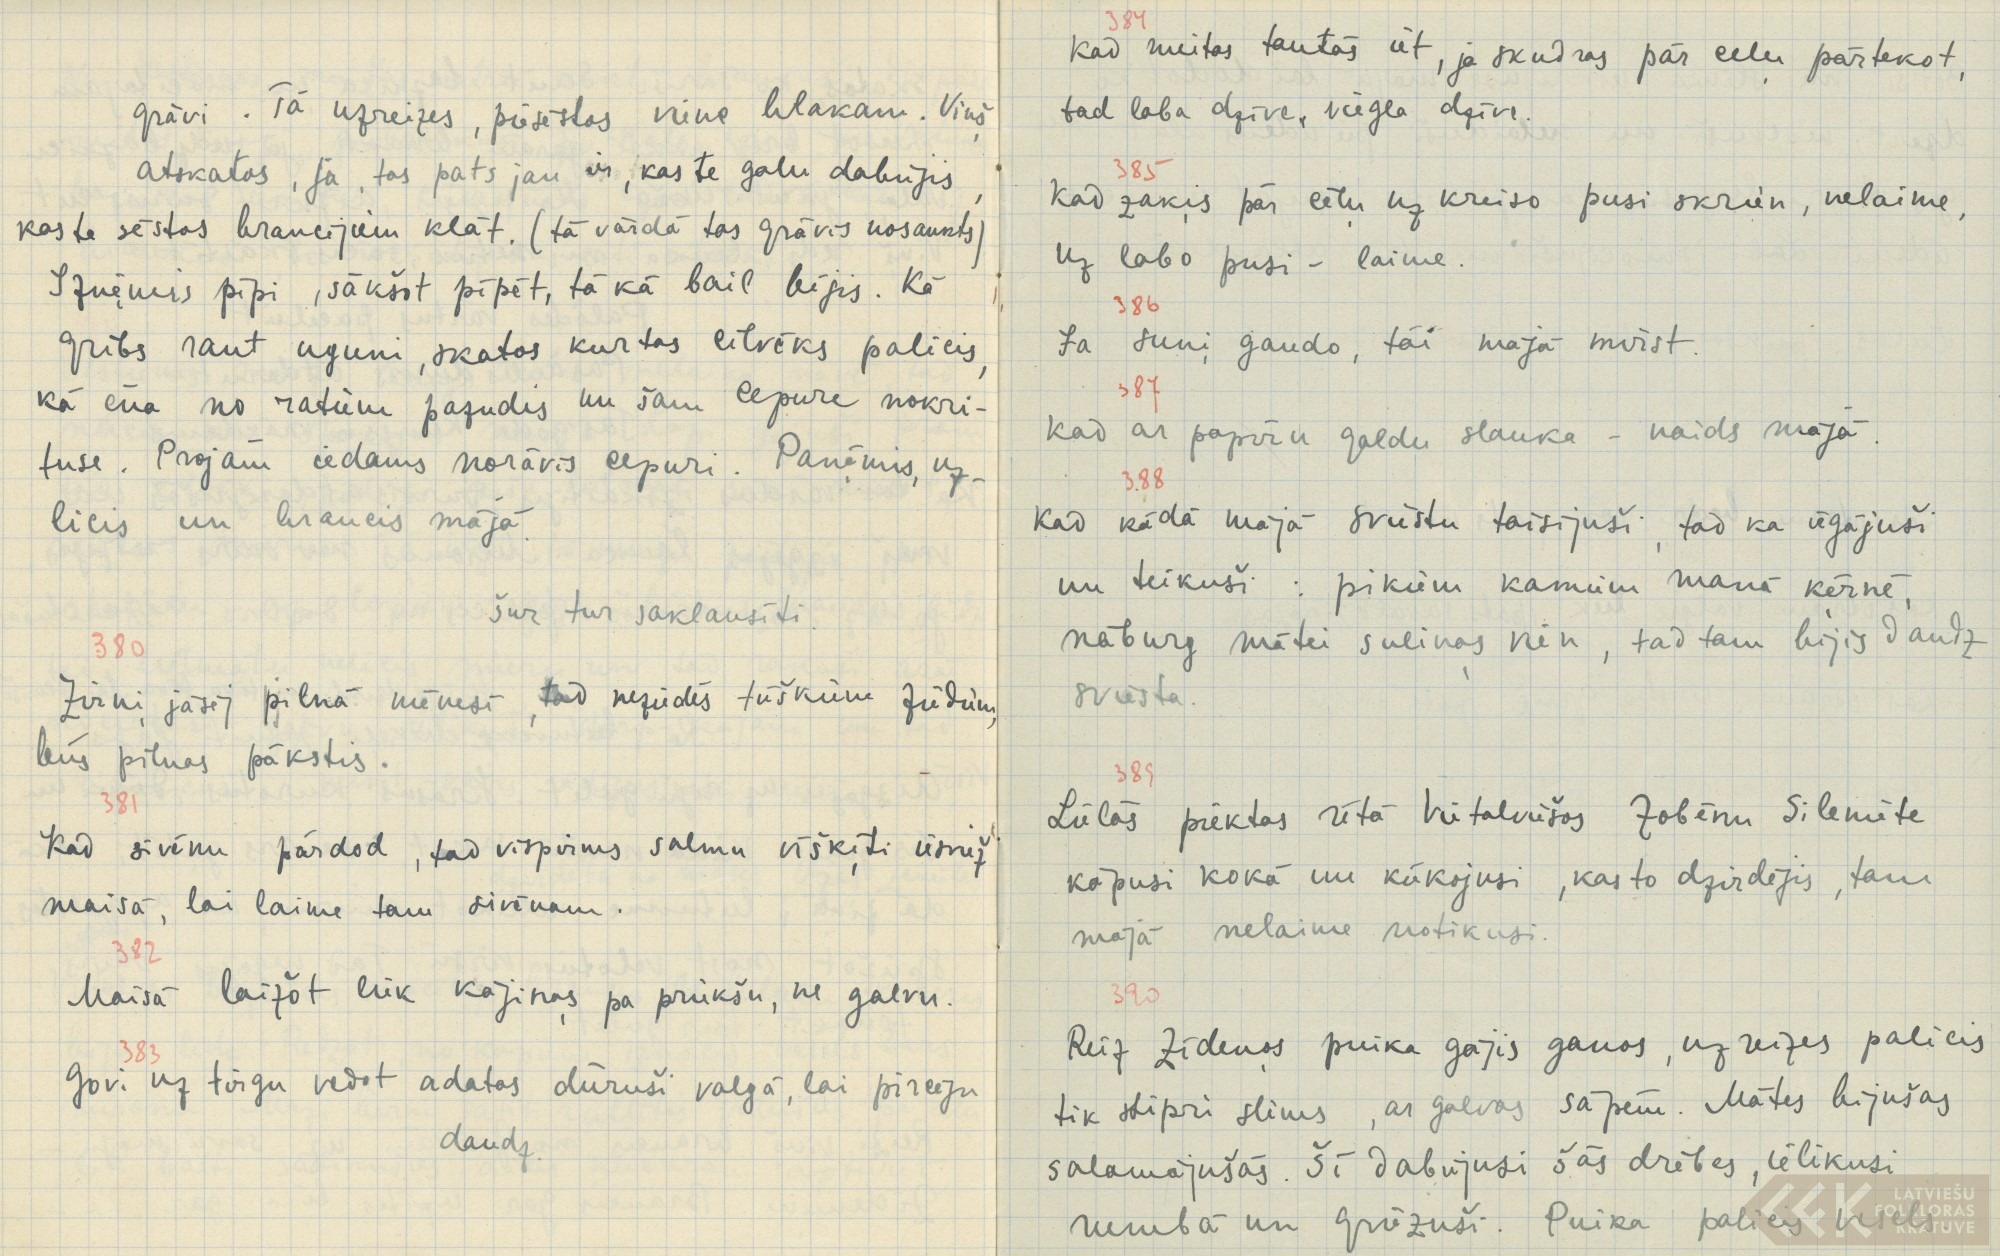 grāvi. Tā uzreizes, piesēstas viņe blakam. Viņš
atskatās, jā, tas pats jau ir, kas te galu dabūjis,
kas te sēstas braucējiem klāt. (tā vārdā tas grāvis nosaukts)
Izņēmis pīpi, sākšot pīpēt, tā kā bail bijis. Kā
gribs raut uguni, skatās kur tas cilvēks palicis,
kā ēna no ratiem pazudis un šam cepure nokri-
tuse. Projām iedams norāvis cepuri. Paņēmis, uz-
licis un braucis mājā.
Šur tur saklausīti.
380
Zirņi jāsēj pilnā mēnesī, tad neziedēs tūškiem ziediem,
būs pilnas pākstis.
381
Kad sivēnu pārdod, tad vispirms salmu vīšķīti iesviež
maisā, lai laime tam sivēnam.
382
Maisā laižot liek kājiņas pa priekšu, ne galvu.
383
Govi uz tirgu vedot adatas dūruši valgā, lai pircēju
daudz.
384
Kad meitas tautās iet, ja skudras pār ceļu pārtekot,
tad laba dzīve, viegla dzīve.
385
Kad zaķis pār ceļu uz kreiso pusi skrien, nelaime,
uz labo pusi - laime.
386
Ja suņi gaudo, tai mājā mirst.
387
Kad ar papīru galdu slauka - naids mājā.
388
Kad kādā mājā sviestu taisījuši, tad ka iegājuši
un teikuši: pikiem kamiem manā ķērnē,
nāburg mātei suliņas vien, tad tam bijis daudz
sviesta.
389
Lielās piektas rītā Vietalviešos Zobēnu Silemiete
kāpusi kokā un kūkojusi, kas to dzirdējis, tam
mājā nelaime notikusi.
390
Reiz Zīdeņos puika gājis ganos, uzreizes palicis
tik stipri slims, ar galvas sāpēm. Mātes bijušas
salamājušās. Šī dabūjusi šās drēbes, ielikusi
membā un griezuši. Puika palicis vesels
LATVIEŠU
FOLKLORAS
KRĀTUVE